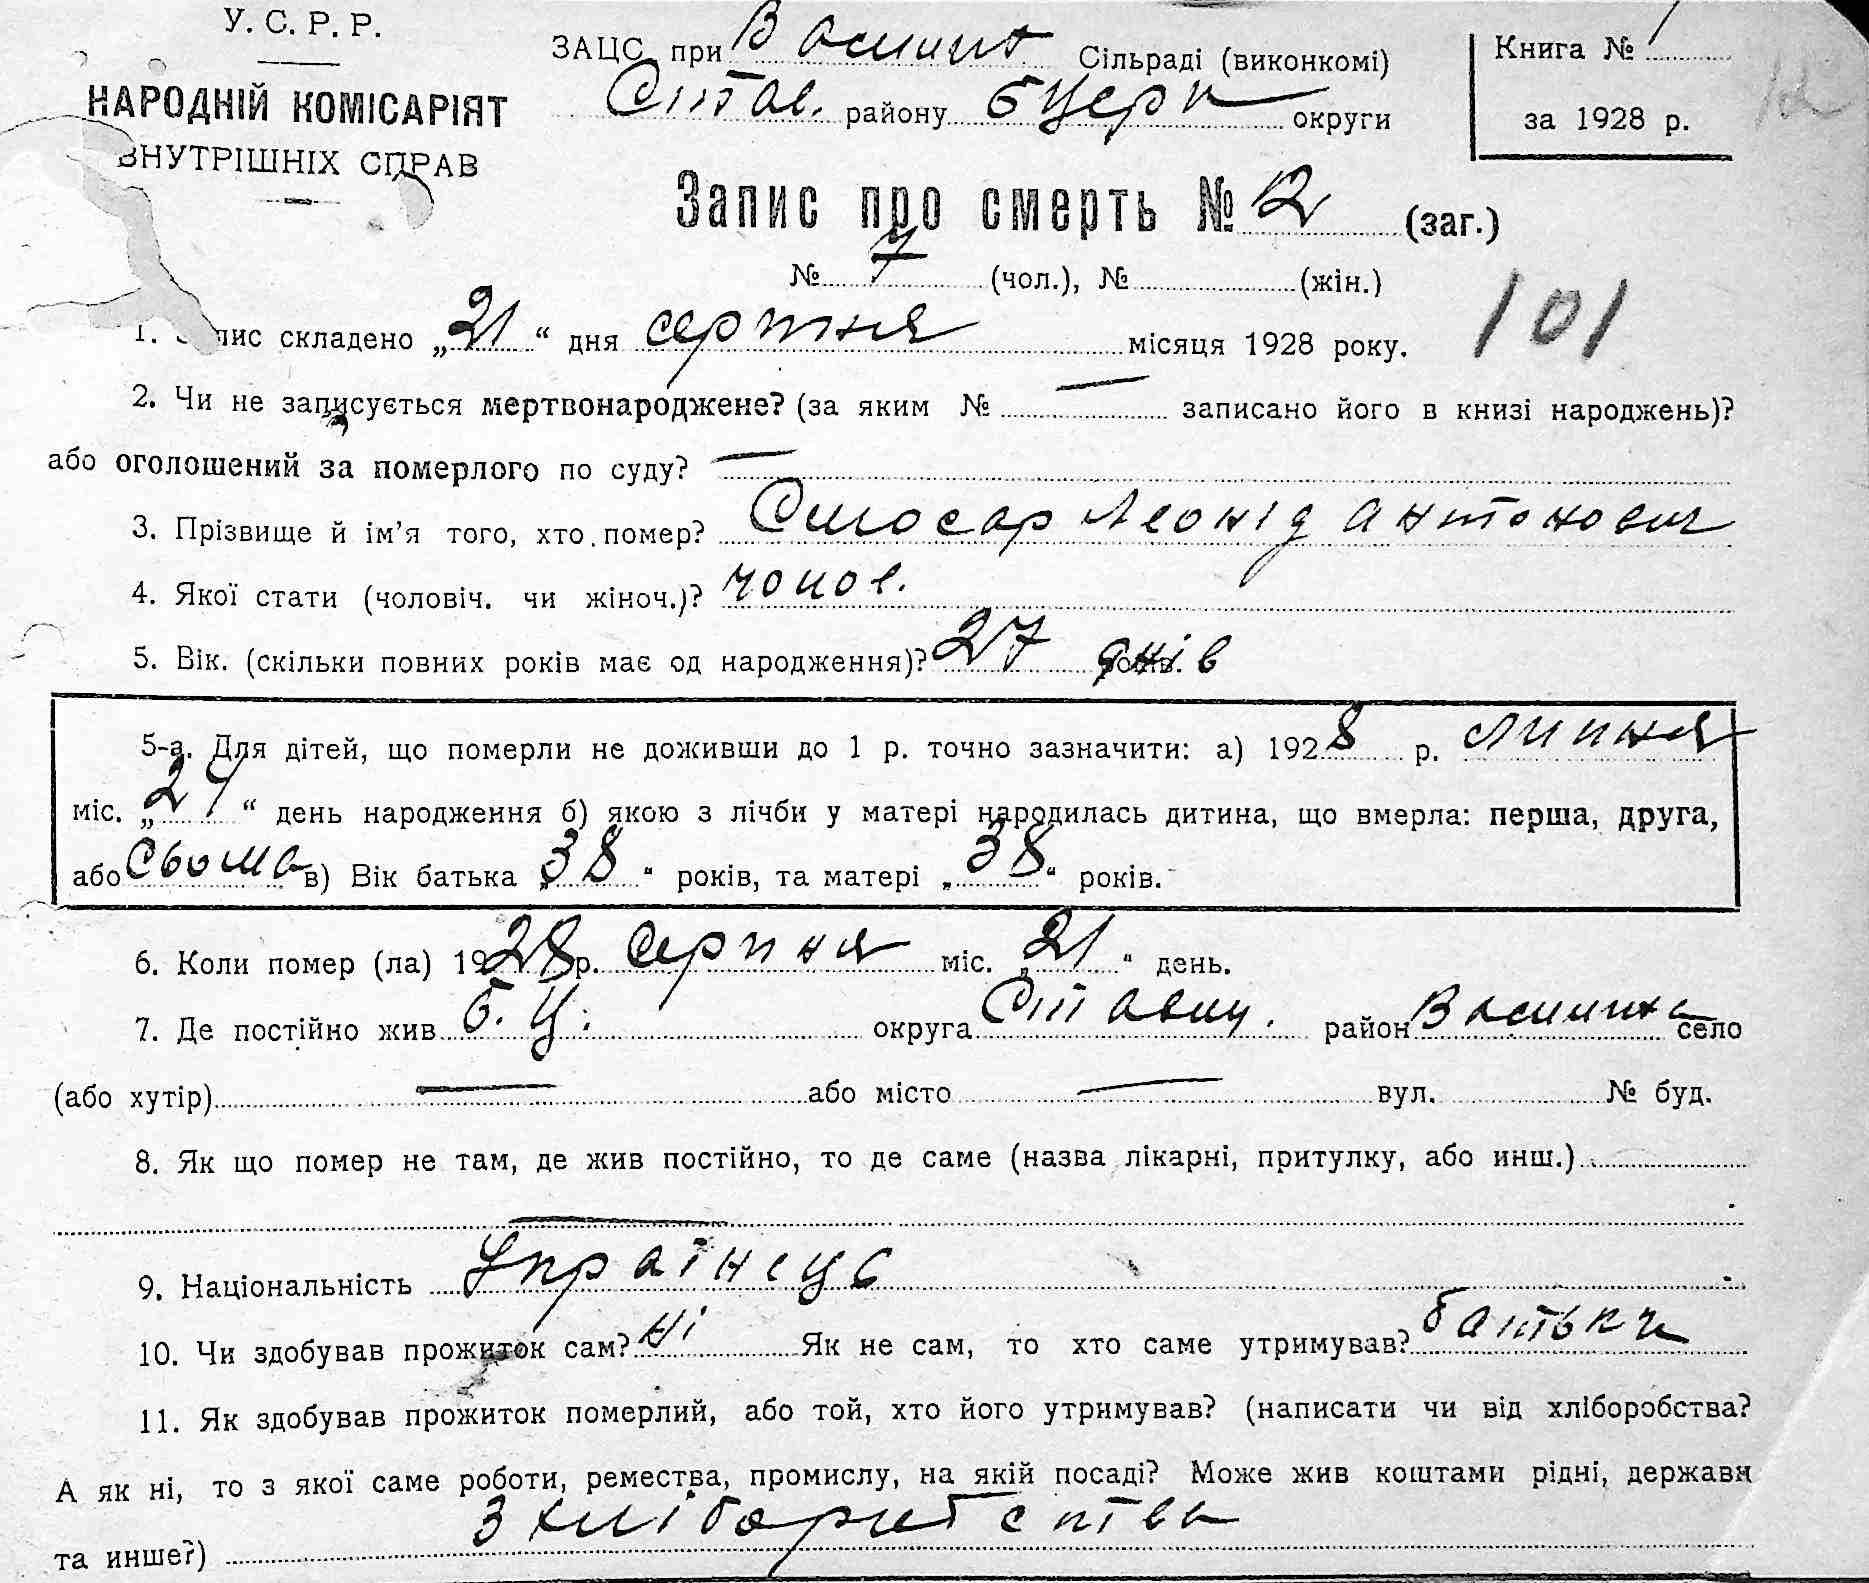 У. С. Р. Р.
НАРОДНІЙ КОМІСАРІЯТ
ВНУТРІШНІХ СПРАВ
ЗАЦС при Василих Сільраді (виконкомі)
Став. району Бцерк округи
Книга № 1
за 1928 р.
12
Запис про смерть № 12 (заг.)
№ 7 (чол.), № (жін.)
101
1. Запис складено „21“ дня серпня місяця 1928 року.
2. Чи не записується мертвонароджене? (за яким № — записано його в книзі народжень)?
або оголошений за померлого по суду? —
3. Прізвище й ім’я того, хто помер? Слюсар Леонід Антонович
4. Якої стати (чоловіч. чи жіноч.)? чолов.
5. Вік. (скільки повних років має од народження)? 27 днів
5-а. Для дітей, що померли не доживши до 1 р. точно зазначити: а) 1928 р. липня
міс. „24“ день народження б) якою з лічби у матері народилась дитина, що вмерла: перша, друга,
або сьома в) Вік батька „38“ років, та матері „38“ років.
6. Коли помер (ла) 1928 р. серпня міс. „21“ день.
7. Де постійно жив Б.Ц. округа Ставищ. район село
(або хутір) — або місто — вул. № буд.
8. Як що помер не там, де жив постійно, то де саме (назва лікарні, притулку, або инш.)
—
9. Національність Українець
10. Чи здобував прожиток сам? ні Як не сам, то хто саме утримував? батьки
11. Як здобував прожиток померлий, або той, хто його утримував? (написати чи від хліборобства?
А як ні, то з якої саме роботи, ремества, промислу, на якій посаді? Може жив коштами рідні, держави
та инше?) З хліборобства